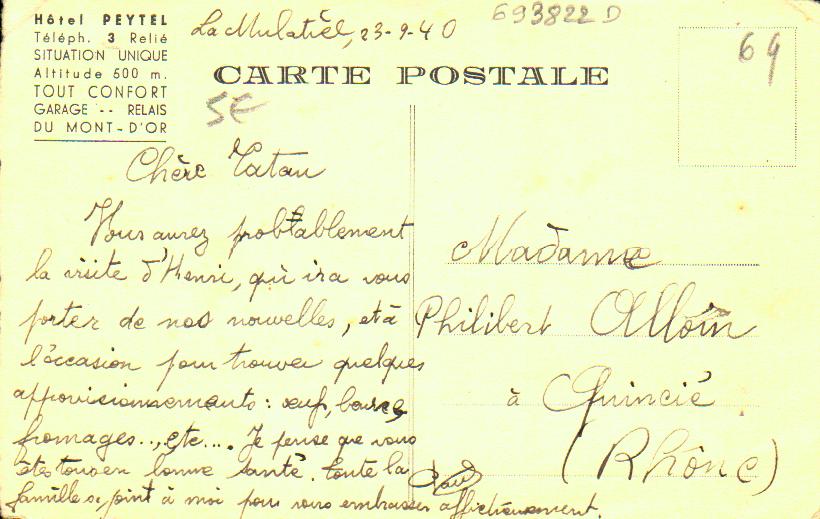 Hôtel PEYTEL
Téléph. 3 Relié
SITUATION UNIQUE
Altitude 500 m.
TOUT CONFORT
GARAGE -- RELAIS
DU MONT-D'OR
La Mulatière, 23-9-40
693822 D
69
CARTE POSTALE
SE
Chère Tatan
Vous aurez probablement
la visite d'Henri, qui ira vous
porter de nos nouvelles, et à
l'occasion pour trouver quelques
approvisionnements : œufs, beurre,
fromages..., etc.... Je pense que vous
êtes tous en bonne santé. Toute la
famille se joint à moi pour vous embrasser affectueusement.
Madame
Philibert Alloin
à Quincié
(Rhône)